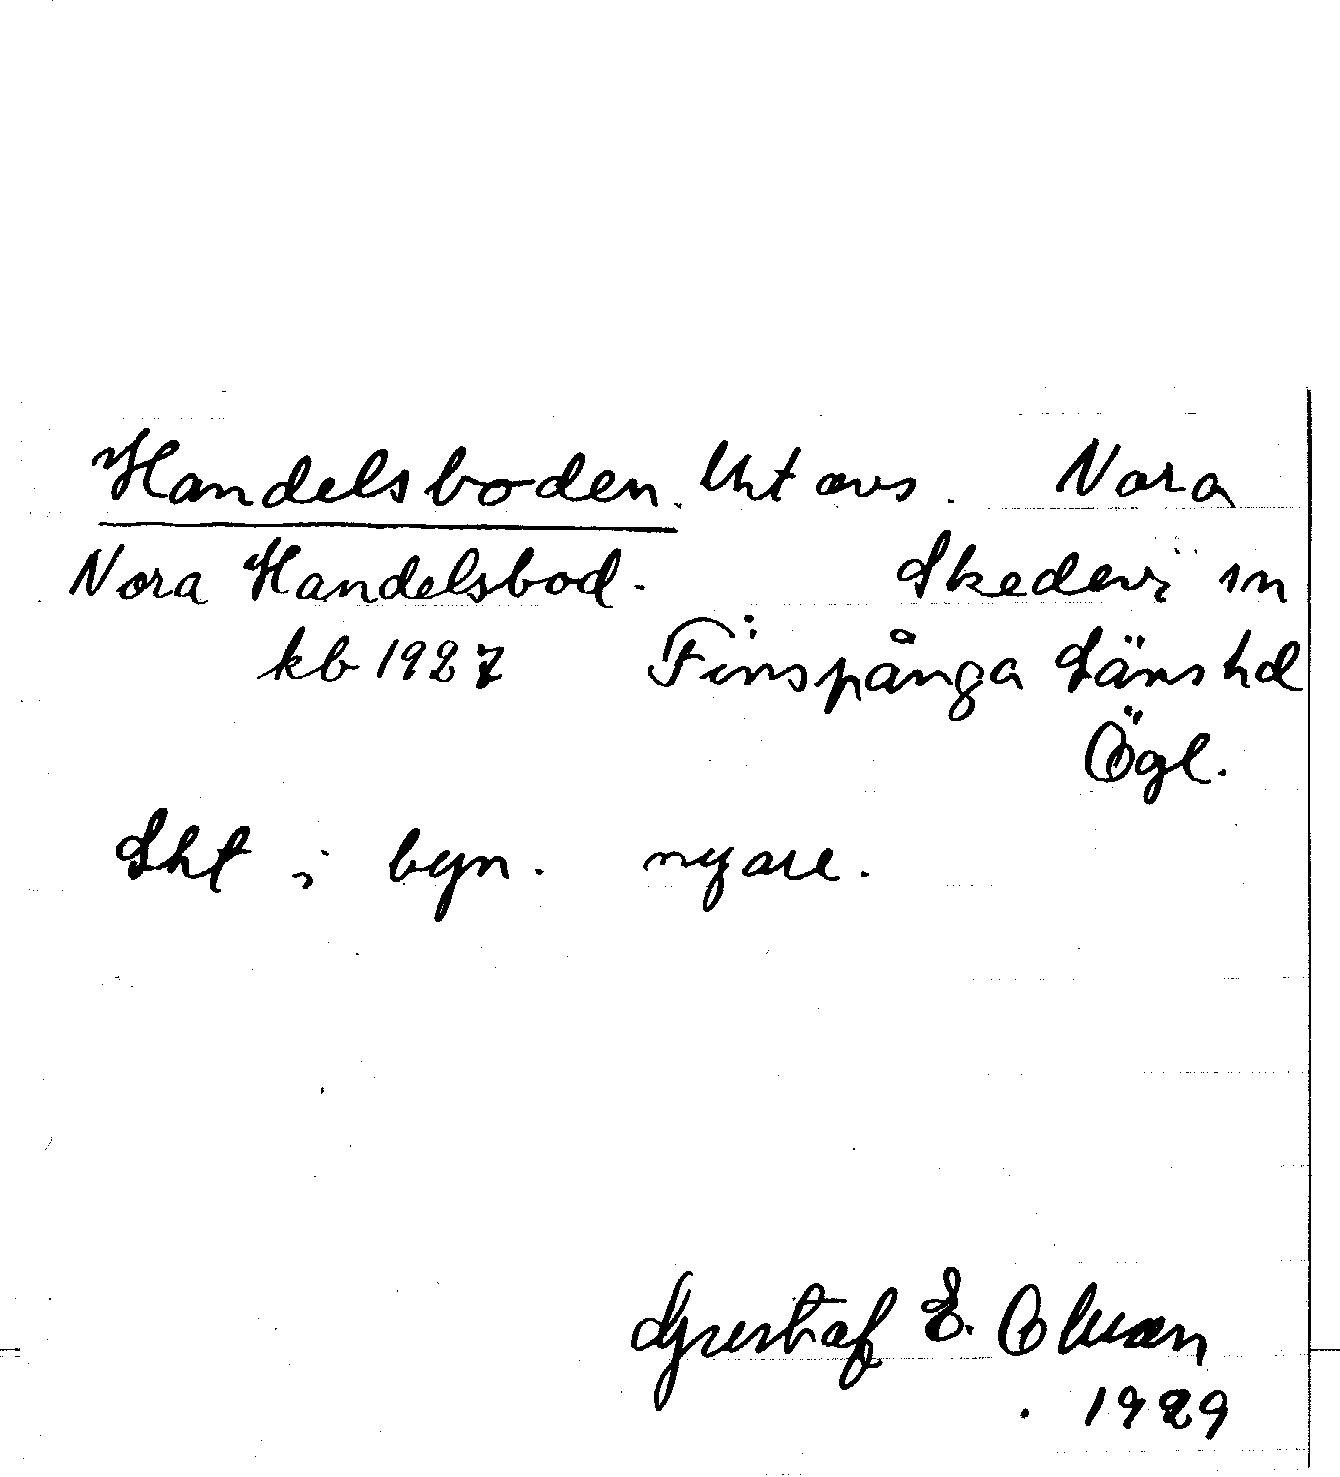 Handelsboden. Uht avs. Nora
Nora Handelsbod. Skedevi sn
kb 1927 Finspånga Länshd
Ögl.
Lht i byn. nyare.
Gustaf E. Olsson
1929